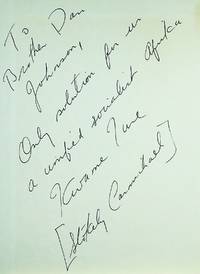 To
Brother Dan
Johnson,
Only solution for us
a unified socialist Afrika
Kwame Ture
[Stokely Carmichael]